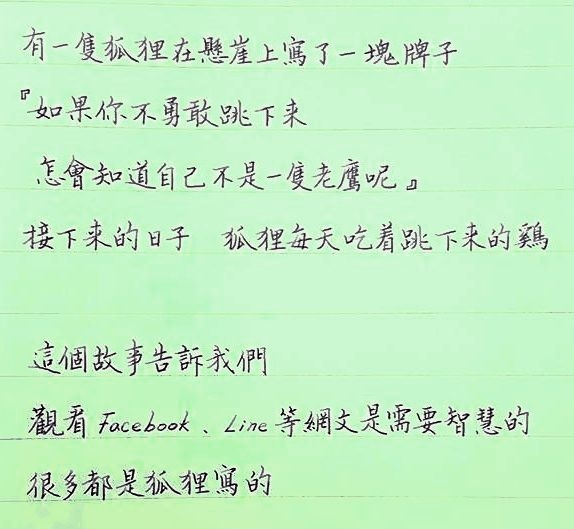 有一隻狐狸在懸崖上寫了一塊牌子
『如果你不勇敢跳下来
怎會知道自己不是一隻老鷹呢』
接下來的日子 狐狸每天吃着跳下來的鷄
這個故事告訴我們
觀看 Facebook、Line 等網文是需要智慧的
很多都是狐狸寫的